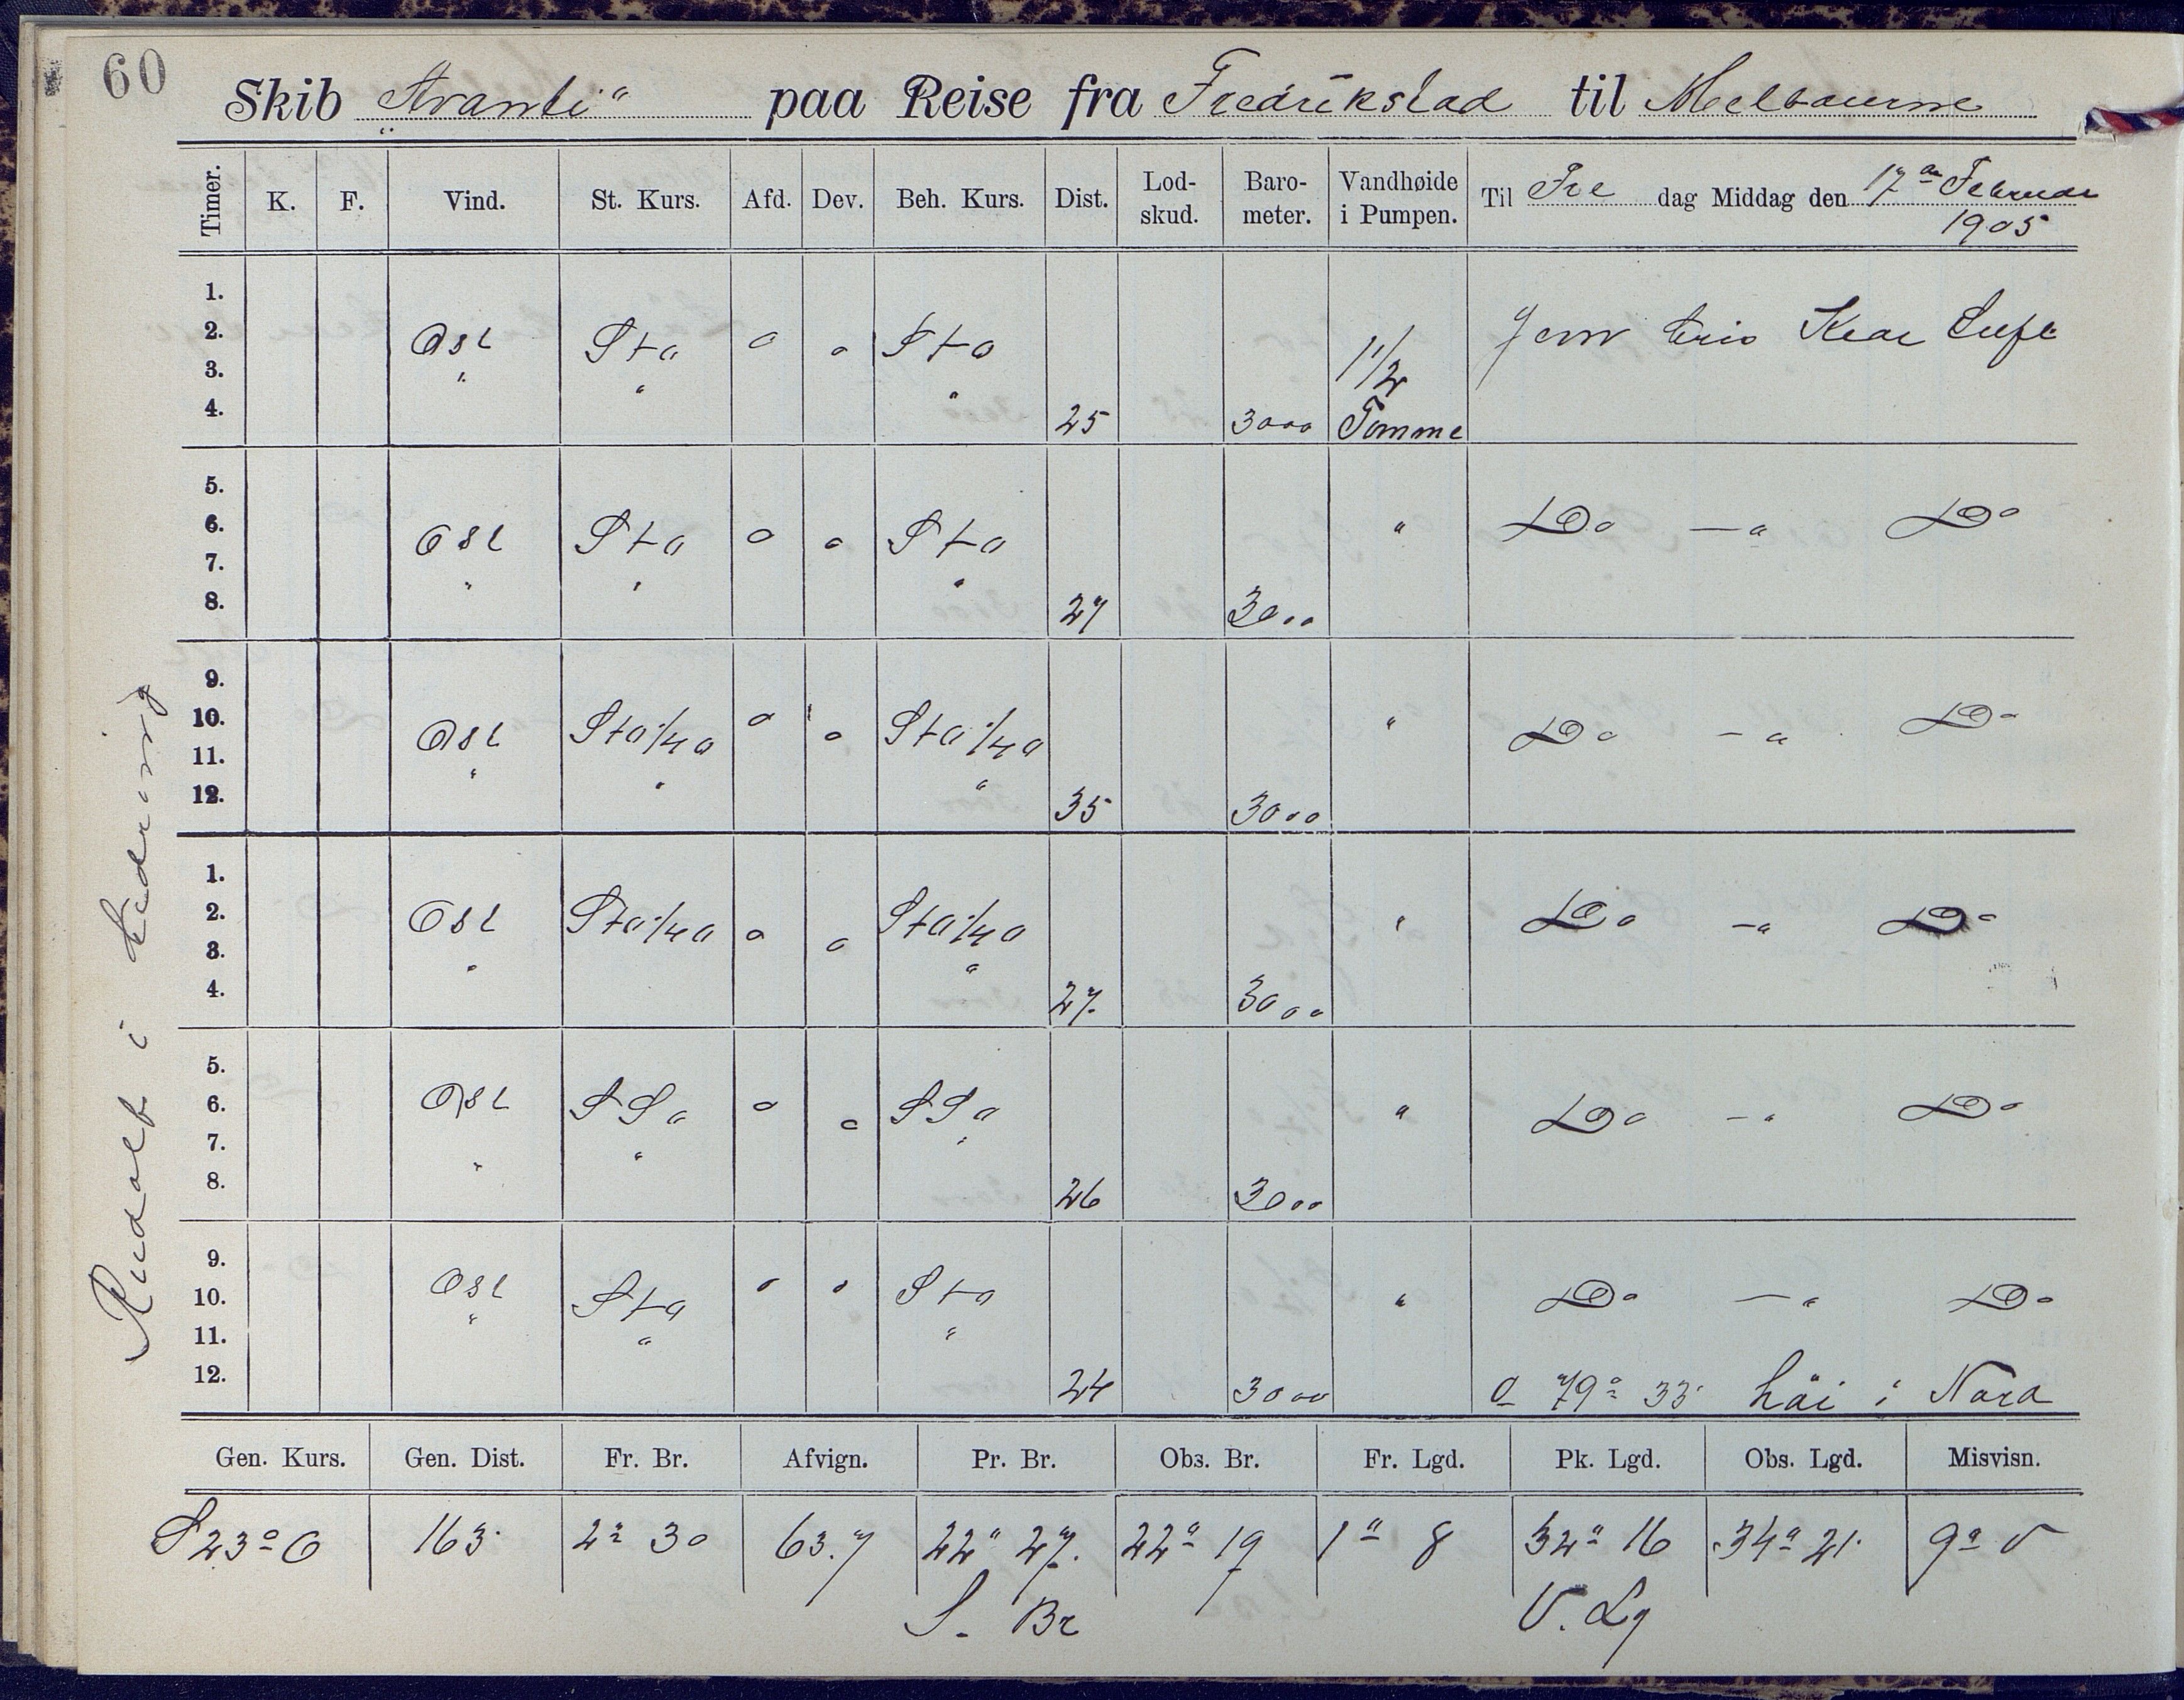 60
Skib "Avanti" paa Reise fra Fredrikstad til Melbourne
Timer. K. F. Vind. St. Kurs. Afd. Dev. Beh. Kurs. Dist. Lod-skud. Baro-meter. Vandhøide i Pumpen. Til Fre dag Middag den 17de Februar 1905
1.
2. Ost StO 0 0 StO Jevn bris Klar Luft
3. " " " 1 1/2
4. 25 3000 Tomme
5.
6. Ost StO 0 0 StO " Do —"— Do
7. " " "
8. 27 3000
9.
10. Ost StO 1/4 O 0 0 StO 1/4 O " Do —"— Do
11. " " "
12. 35 3000
1.
2. Ost StO 1/4 O 0 0 StO 1/4 O " Do —"— Do
3. " "
4. 27. 3000
5.
6. Ost SSO 0 0 SSO " Do —"— Do
7. " " "
8. 26 3000
9.
10. Ost StO 0 0 StO " Do —"— Do
11. " " "
12. 24 3000 79° 33' i Nord
Rudolf i
Gen. Kurs. Gen. Dist. Fr. Br. Afvign. Pr. Br. Obs. Br. Fr. Lgd. Pk. Lgd. Obs. Lgd. Misvisn.
S 23° O 163 2° 30 63.7 22° 27. 22° 19 1° 8 32° 16 34° 21. 9° V
S. Br V. Lg